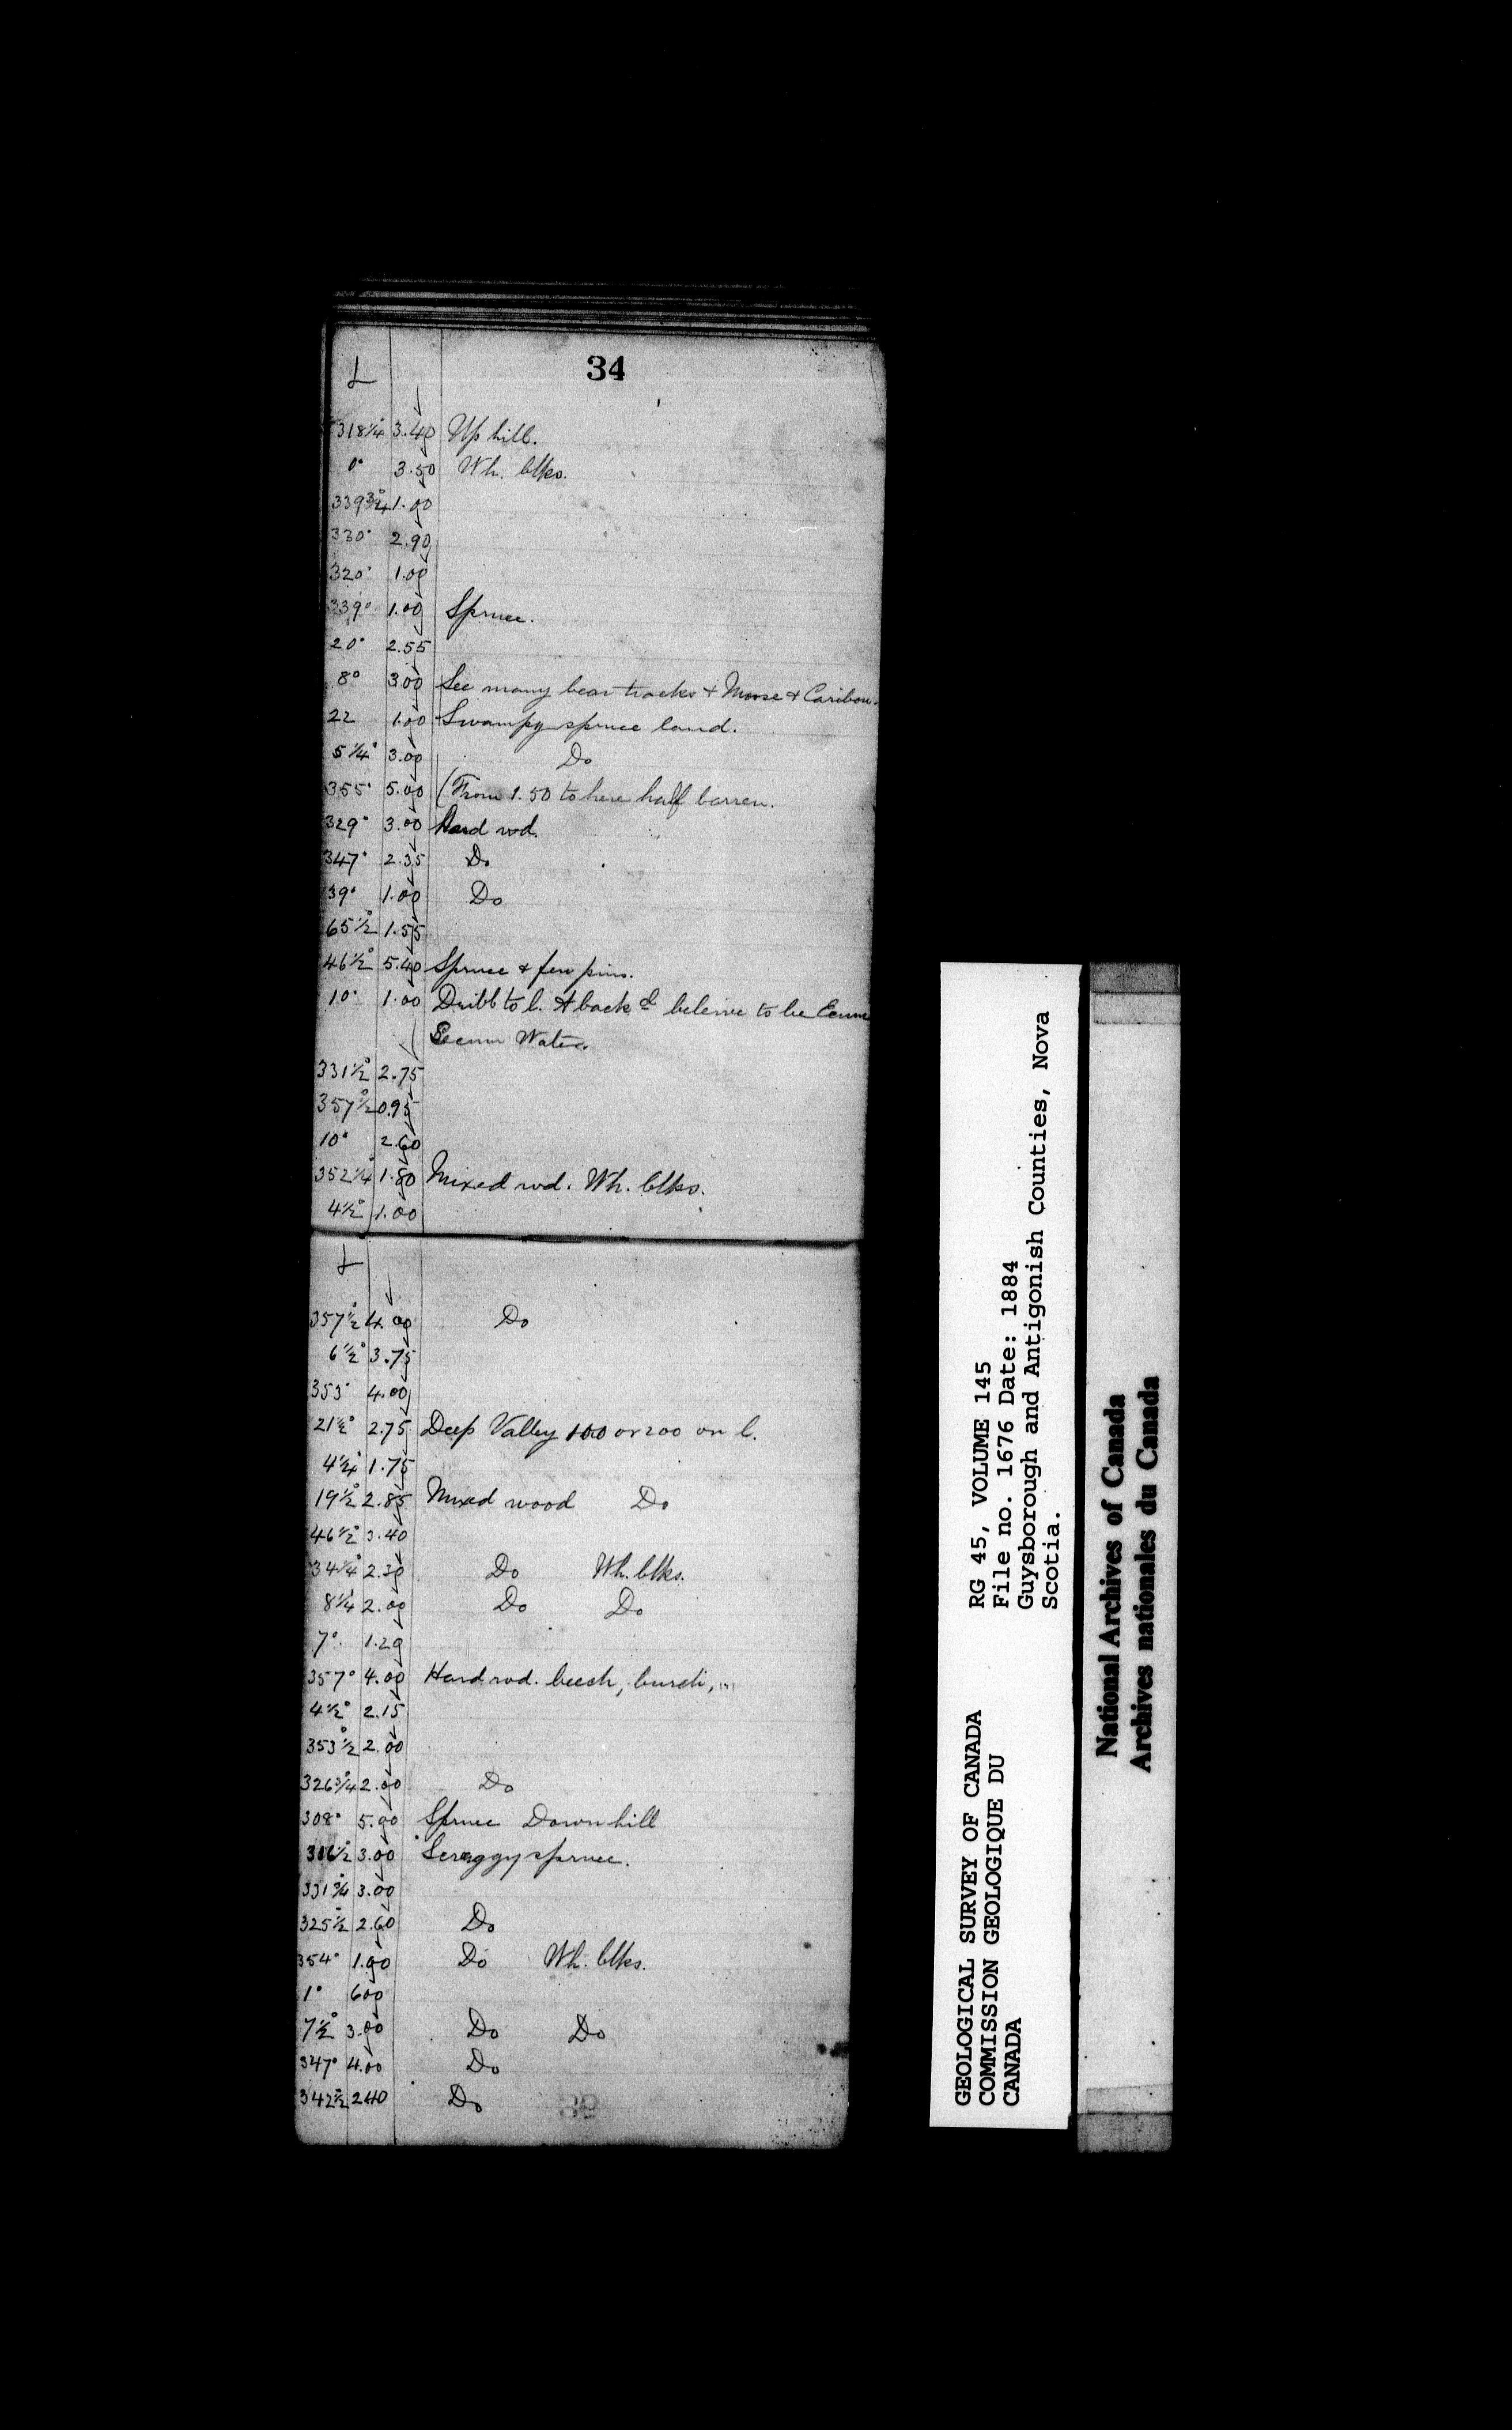 34
L
318¼ 3.40 Up hill.
0° 3.50 Wh. blks.
339¾° 1.00
330° 2.90
320° 1.00
339° 1.00 Spruce.
20° 2.55
8° 3.00 See many bear tracks + Moose + Caribou.
22 1.00 Swampy spruce land.
5¼° 3.00 Do
355° 5.00 (From 1.50 to here half barren.
329° 3.00 Hard wd.
347° 2.35 Do
39° 1.00 Do
65½° 1.55
46½° 5.40 Spruce & few pins.
10° 1.00 Dribb to l. & back beleive to be Ecum
Secum Water.
331½° 2.75
357½° 0.95
10° 2.60
352¼° 1.80 Mixed wd. Wh. blks.
4½° 1.00
L
357½° 4.00 Do
6½° 3.75
353° 4.00
21½° 2.75 Deep Valley 100 or 200 on l.
4¼° 1.75
19½° 2.85 Mixed wood Do
46½° 3.40
34¼° 2.30 Do Wh. blks.
8¼ 2.00 Do Do
7° 1.20
357° 4.00 Hard wd. beech, burch,
4½° 2.15
353½° 2.00
326¾ 2.00 Do
308° 5.00 Spruce Down hill
316½° 3.00 Scraggy spruce.
331¾ 3.00
325½° 2.60 Do
354° 1.00 Do Wh. blks.
1° 600
7½° 3.00 Do Do
347° 4.00 Do
342½° 240 Do
GEOLOGICAL SURVEY OF CANADA
COMMISSION GEOLOGIQUE DU
CANADA
RG 45, VOLUME 145
File no. 1676 Date: 1884
Guysborough and Antigonish Counties, Nova
Scotia.
National Archives of Canada
Archives nationales du Canada